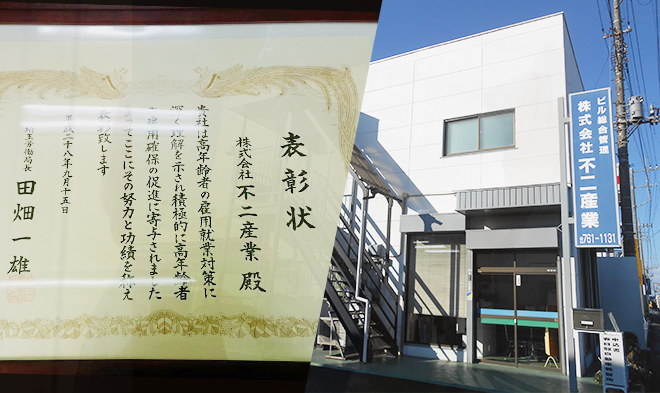 表彰状
株式会社 不二産業 殿
貴社は高年齢者の雇用就業対策に
深く理解を示され積極的に高年齢者
の雇用確保の促進に寄与されました
よってここにその努力と功績を称え
表彰致します
平成二十八年九月十五日
埼玉労働局長 田畑一雄
ビル総合管理
株式会社 不二産業
☎761-1131